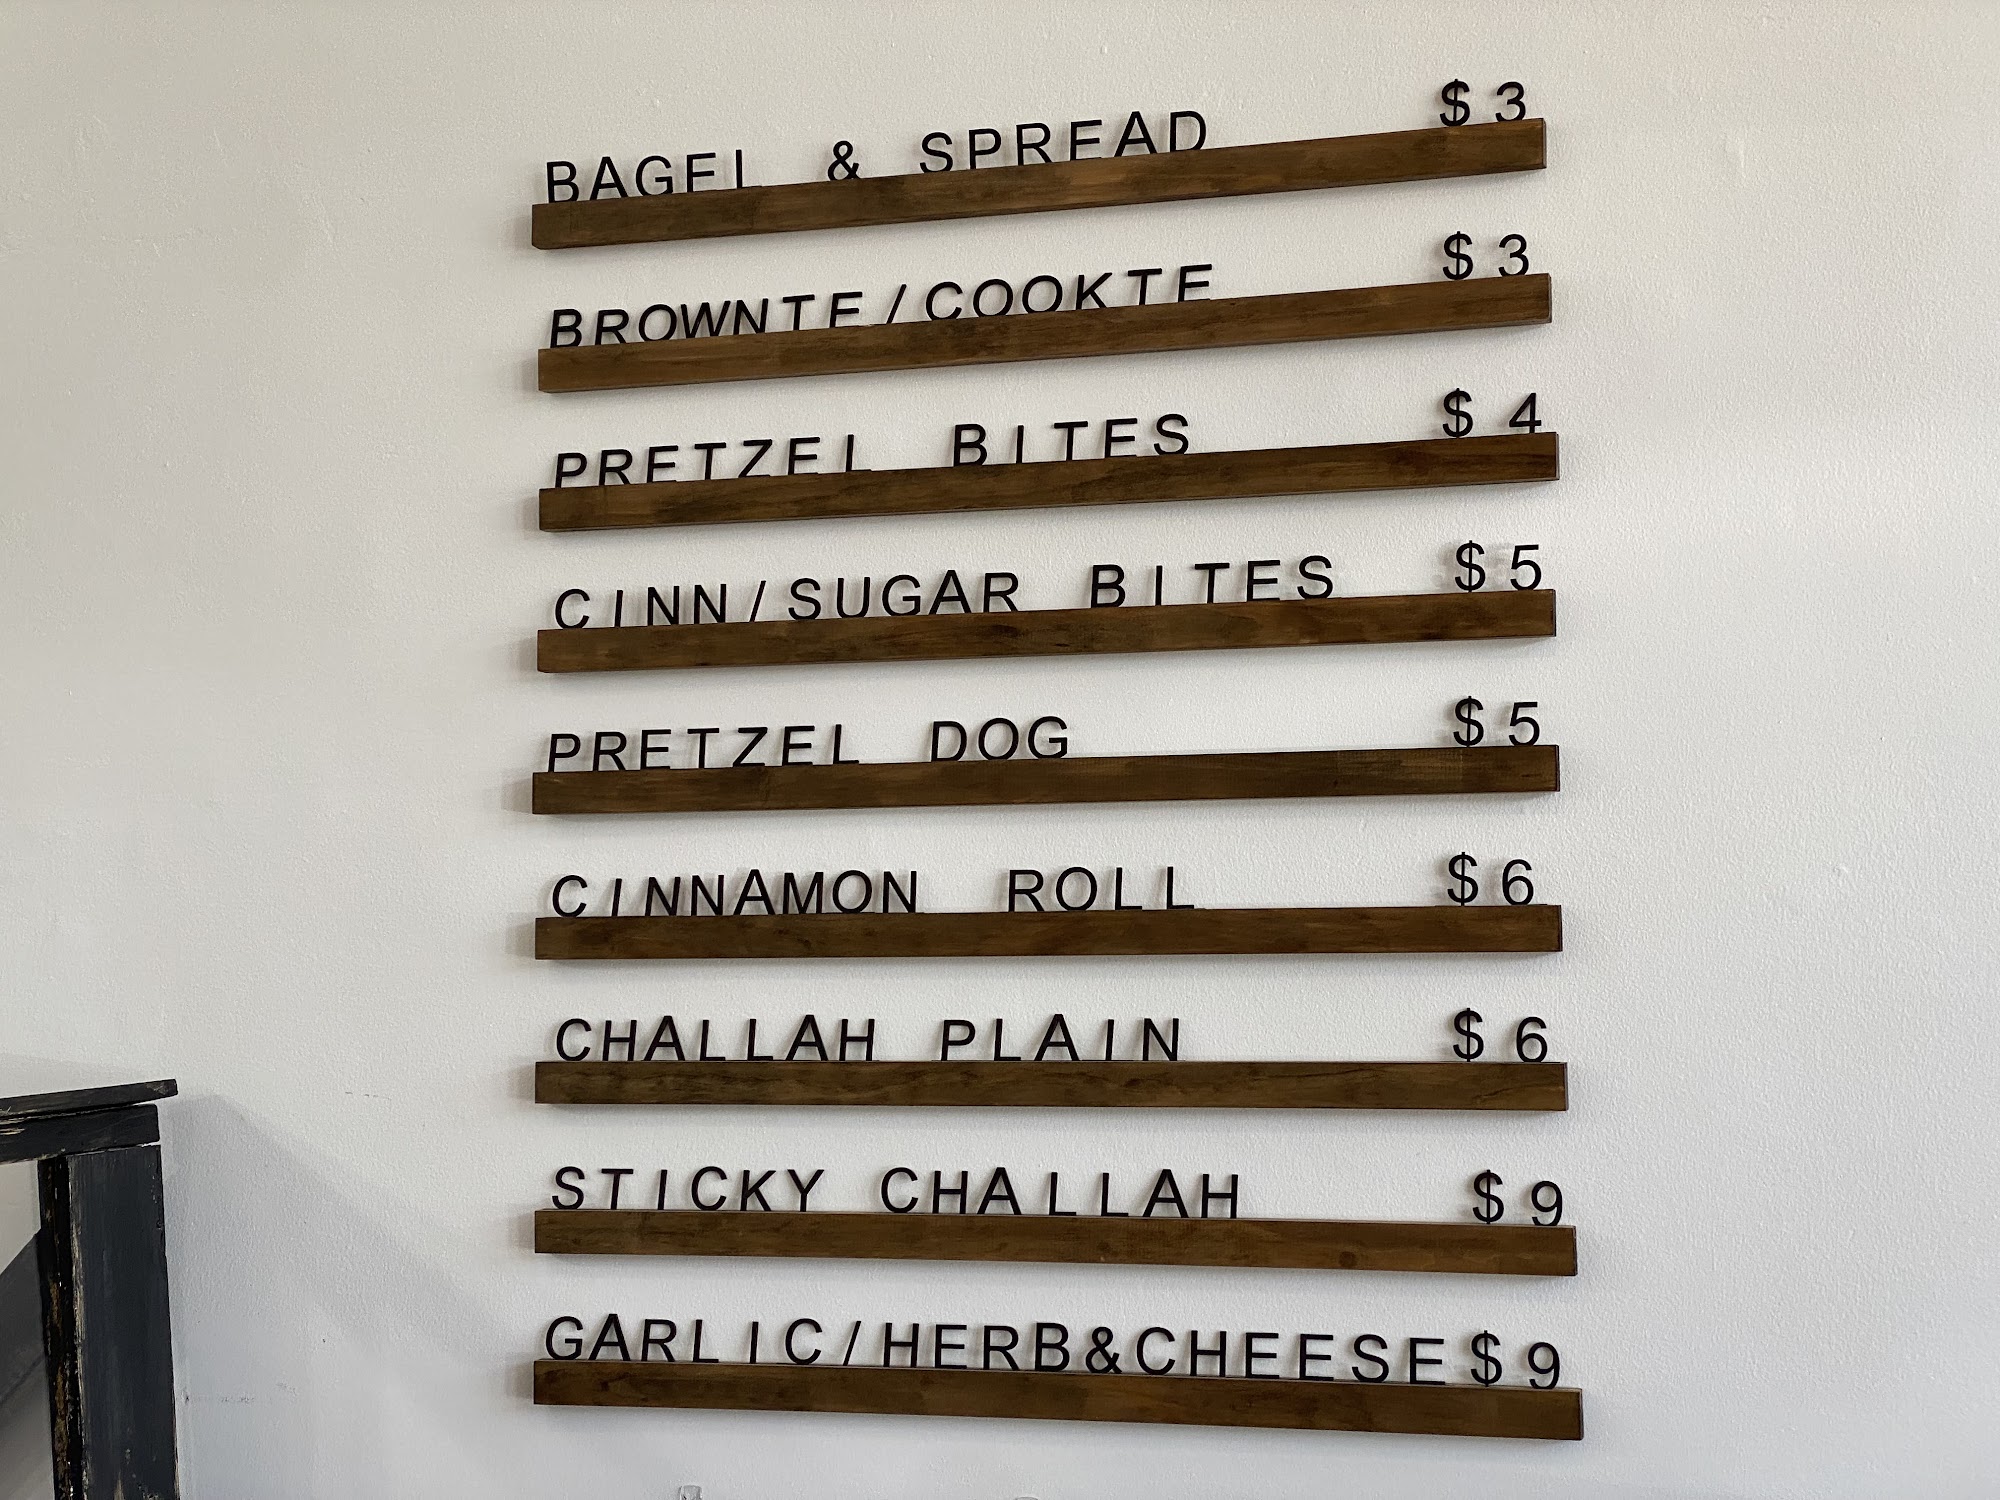 BAGEL & SPREAD $3
BROWNIE/COOKIE $3
PRETZEL BITES $4
CINN/SUGAR BITES $5
PRETZEL DOG $5
CINNAMON ROLL $6
CHALLAH PLAIN $6
STICKY CHALLAH $9
GARLIC/HERB&CHEESE $9